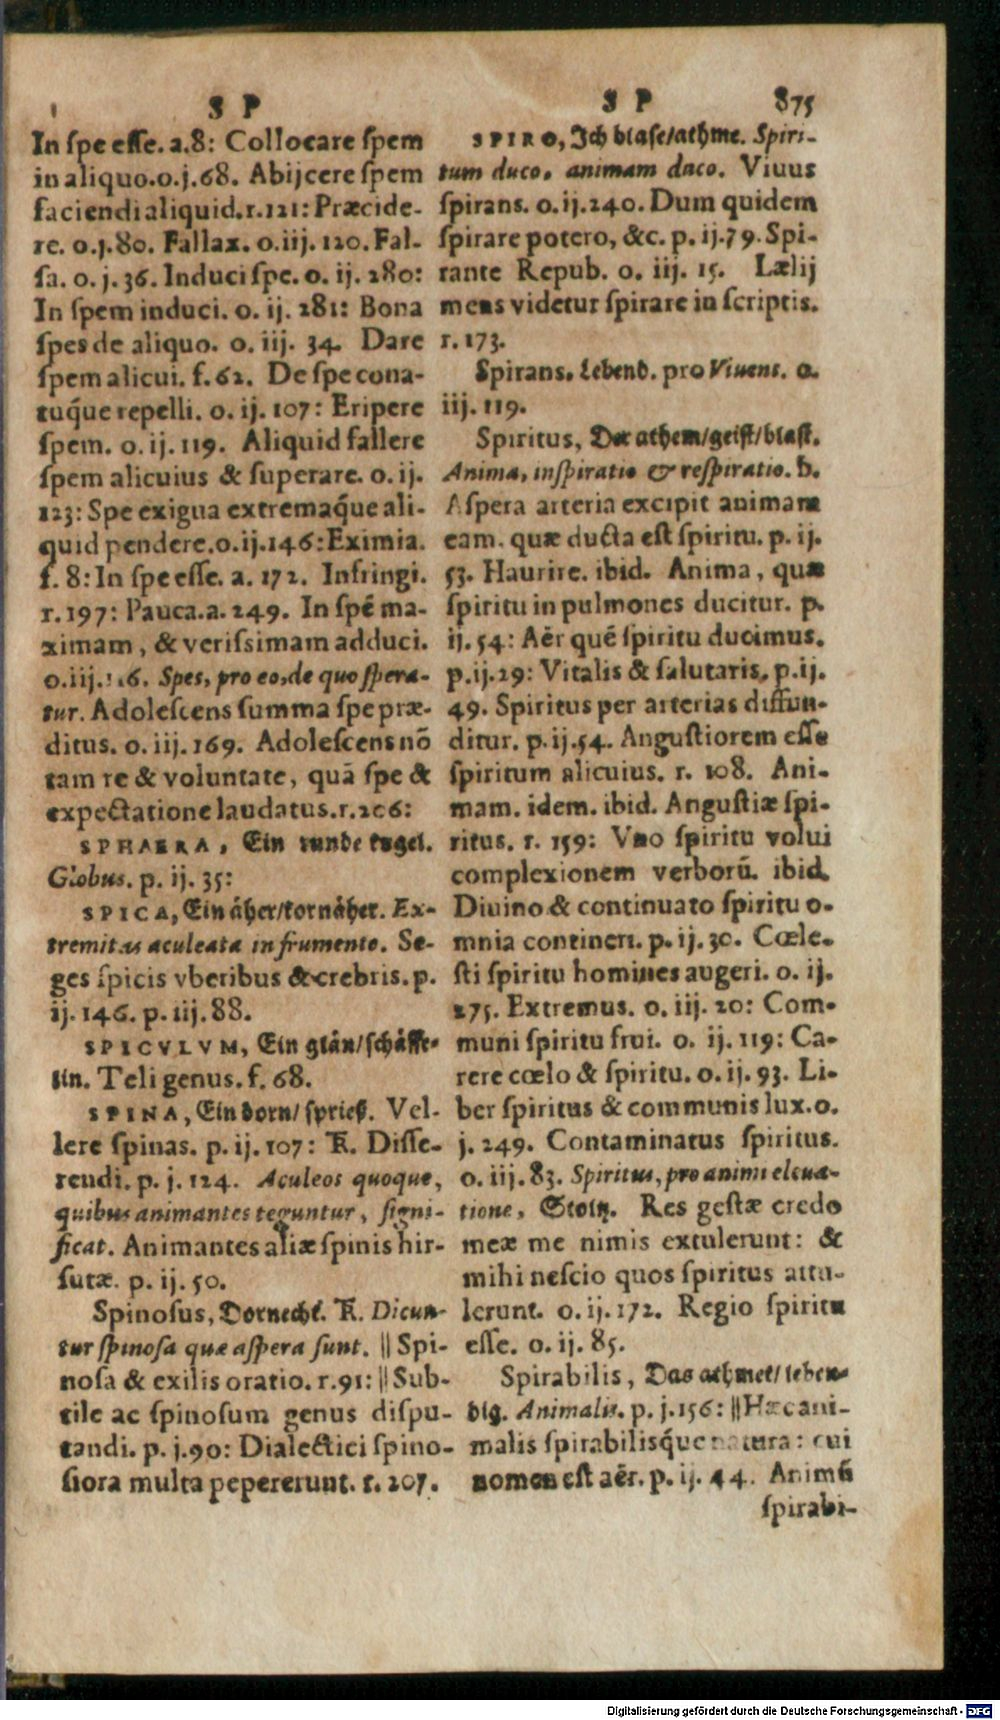 S P
In spe esse. a.8: Collocare spem
in aliquo.o.j.68. Abijcere spem
faciendi aliquid.r.121: Præcide-
re. o.j.80. Fallax. o.iij. 120. Fal-
sa. o. j.36. Induci spe. o. ij. 280:
In spem induci. o. ij. 281: Bona
spes de aliquo. o. iij. 34. Dare
spem alicui. f.62. De spe cona-
tuq́ue repelli. o. ij. 107: Eripere
spem. o. ij. 119. Aliquid fallere
spem alicuius & superare. o. ij.
123: Spe exigua extremaq́ue ali-
quid pendere.o.ij.146: Eximia.
f. 8: In spe esse. a. 172. Infringi.
r.197: Pauca.a. 249. In spẽ ma-
ximam, & verissimam adduci.
o.iij. Spes, pro eo, de quo spera-
tur. Adolescens summa spe præ-
ditus. o. iij. 169. Adolescens nõ
tam re & voluntate, quã spe &
expectatione laudatus.r.206:
SPHAERA, Ein runde kugel.
Globus. p. ij. 35:
SPICA, Ein äher/kornäher. Ex-
tremitas aculeata in frumento. Se-
ges spicis vberibus & crebris. p.
ij. 146. p. iij. 88.
SPICVLVM, Ein glän/schäffe-
lin. Teli genus. f. 68.
SPINA, Ein dorn/ spries. Vel-
lere spinas. p. ij. 107: R. Disse-
rendi. p. j. 124. Aculeos quoque,
quibus animantes teguntur, signi-
ficat. Animantes aliæ spinis hir-
sutæ. p. ij. 50.
Spinosus, Dornecht. R. Dicun-
tur spinosa quæ aspera sunt. || Spi-
nosa & exilis oratio. r.91: || Sub-
tile ac spinosum genus dispu-
tandi. p. j.90: Dialectici spino-
siora multa pepererunt. r. 207.
S P 875
SPIRO, Ich blase/athme. Spiri-
tum duco, animam duco. Viuus
spirans. o. ij.240. Dum quidem
spirare potero, &c. p. ij.79. Spi-
rante Repub. o. iij. 15. Lælij
mens videtur spirare in scriptis.
r. 173.
Spirans. Lebend. pro Viuens. o.
iij. 119.
Spiritus, Der athem/geist/blast.
Anima, inspiratio & respiratio. b.
Aspera arteria excipit animam
eam. quæ ducta est spiritu. p. ij.
53. Haurire. ibid. Anima, quæ
spiritu in pulmones ducitur. p.
ij. 54: Aër quẽ spiritu ducimus.
p.ij.29: Vitalis & salutaris. p.ij.
49. Spiritus per arterias diffun-
ditur. p.ij.54. Angustiorem esse
spiritum alicuius. r. 108. Ani-
mam. idem. ibid. Angustiæ spi-
ritus. r. 159: Vno spiritu volui
complexionem verborũ. ibid.
Diuino & continuato spiritu o-
mnia contineri. p. ij. 30. Cœle-
sti spiritu homines augeri. o. ij.
275. Extremus. o. iij. 20: Com-
muni spiritu frui. o. ij. 119: Ca-
rere cœlo & spiritu. o. ij. 93. Li-
ber spiritus & communis lux. o.
j. 249. Contaminatus spiritus.
o. iij. 83. Spiritus, pro animi eleua-
tione, Stoltz. Res gestæ credo
meæ me nimis extulerunt: &
mihi nescio quos spiritus attu-
lerunt. o. ij. 172. Regio spiritu
esse. o. ij. 85.
Spirabilis, Das athmet/ leben-
dig. Animalis. p. j.156: || Hæc ani-
malis spirabilisq́ue natura: cui
nomen est aër. p. ij. 44. Animũ
spirabi-
Digitalisierung gefördert durch die Deutsche Forschungsgemeinschaft - DFG